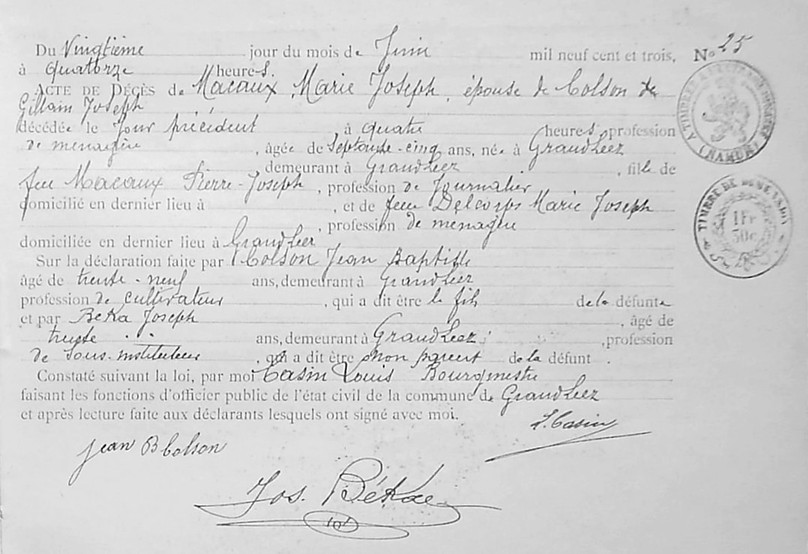 Du Vingtième jour du mois de Juin mil neuf cent et trois, N° 25
à quatorze heures.
ACTE DE DÉCÈS de Macaux Marie Joseph, épouse de Colson de
Gillain Joseph
décédée le jour précédent à quatre heures, profession
de ménagère, âgée de septante-cinq ans, née à Grandleez
, demeurant à Grandleez, fille de
feu Macaux Pierre-Joseph, profession de journalier
domicilié en dernier lieu à , et de feue Delcorps Marie Joseph
, profession de ménagère
domiciliée en dernier lieu à Grandleez
Sur la déclaration faite par Colson Jean Baptiste
âgé de trente-neuf ans, demeurant à Grandleez
profession de cultivateur, qui a dit être le fils de la défunte
et par Béka Joseph, âgé de
trente .. ans, demeurant à Grandleez, profession
de sous-instituteur, qui a dit être non parent de la défunt .
Constaté suivant la loi, par moi Casin Louis Bourgmestre
faisant les fonctions d'officier public de l'état civil de la commune de Grandleez
et après lecture faite aux déclarants lesquels ont signé avec moi.
L. Casin
Jean B Colson
Jos. Béka
(NAMUR)
TIMBRE DE DIMENSION
1 Fr
50c